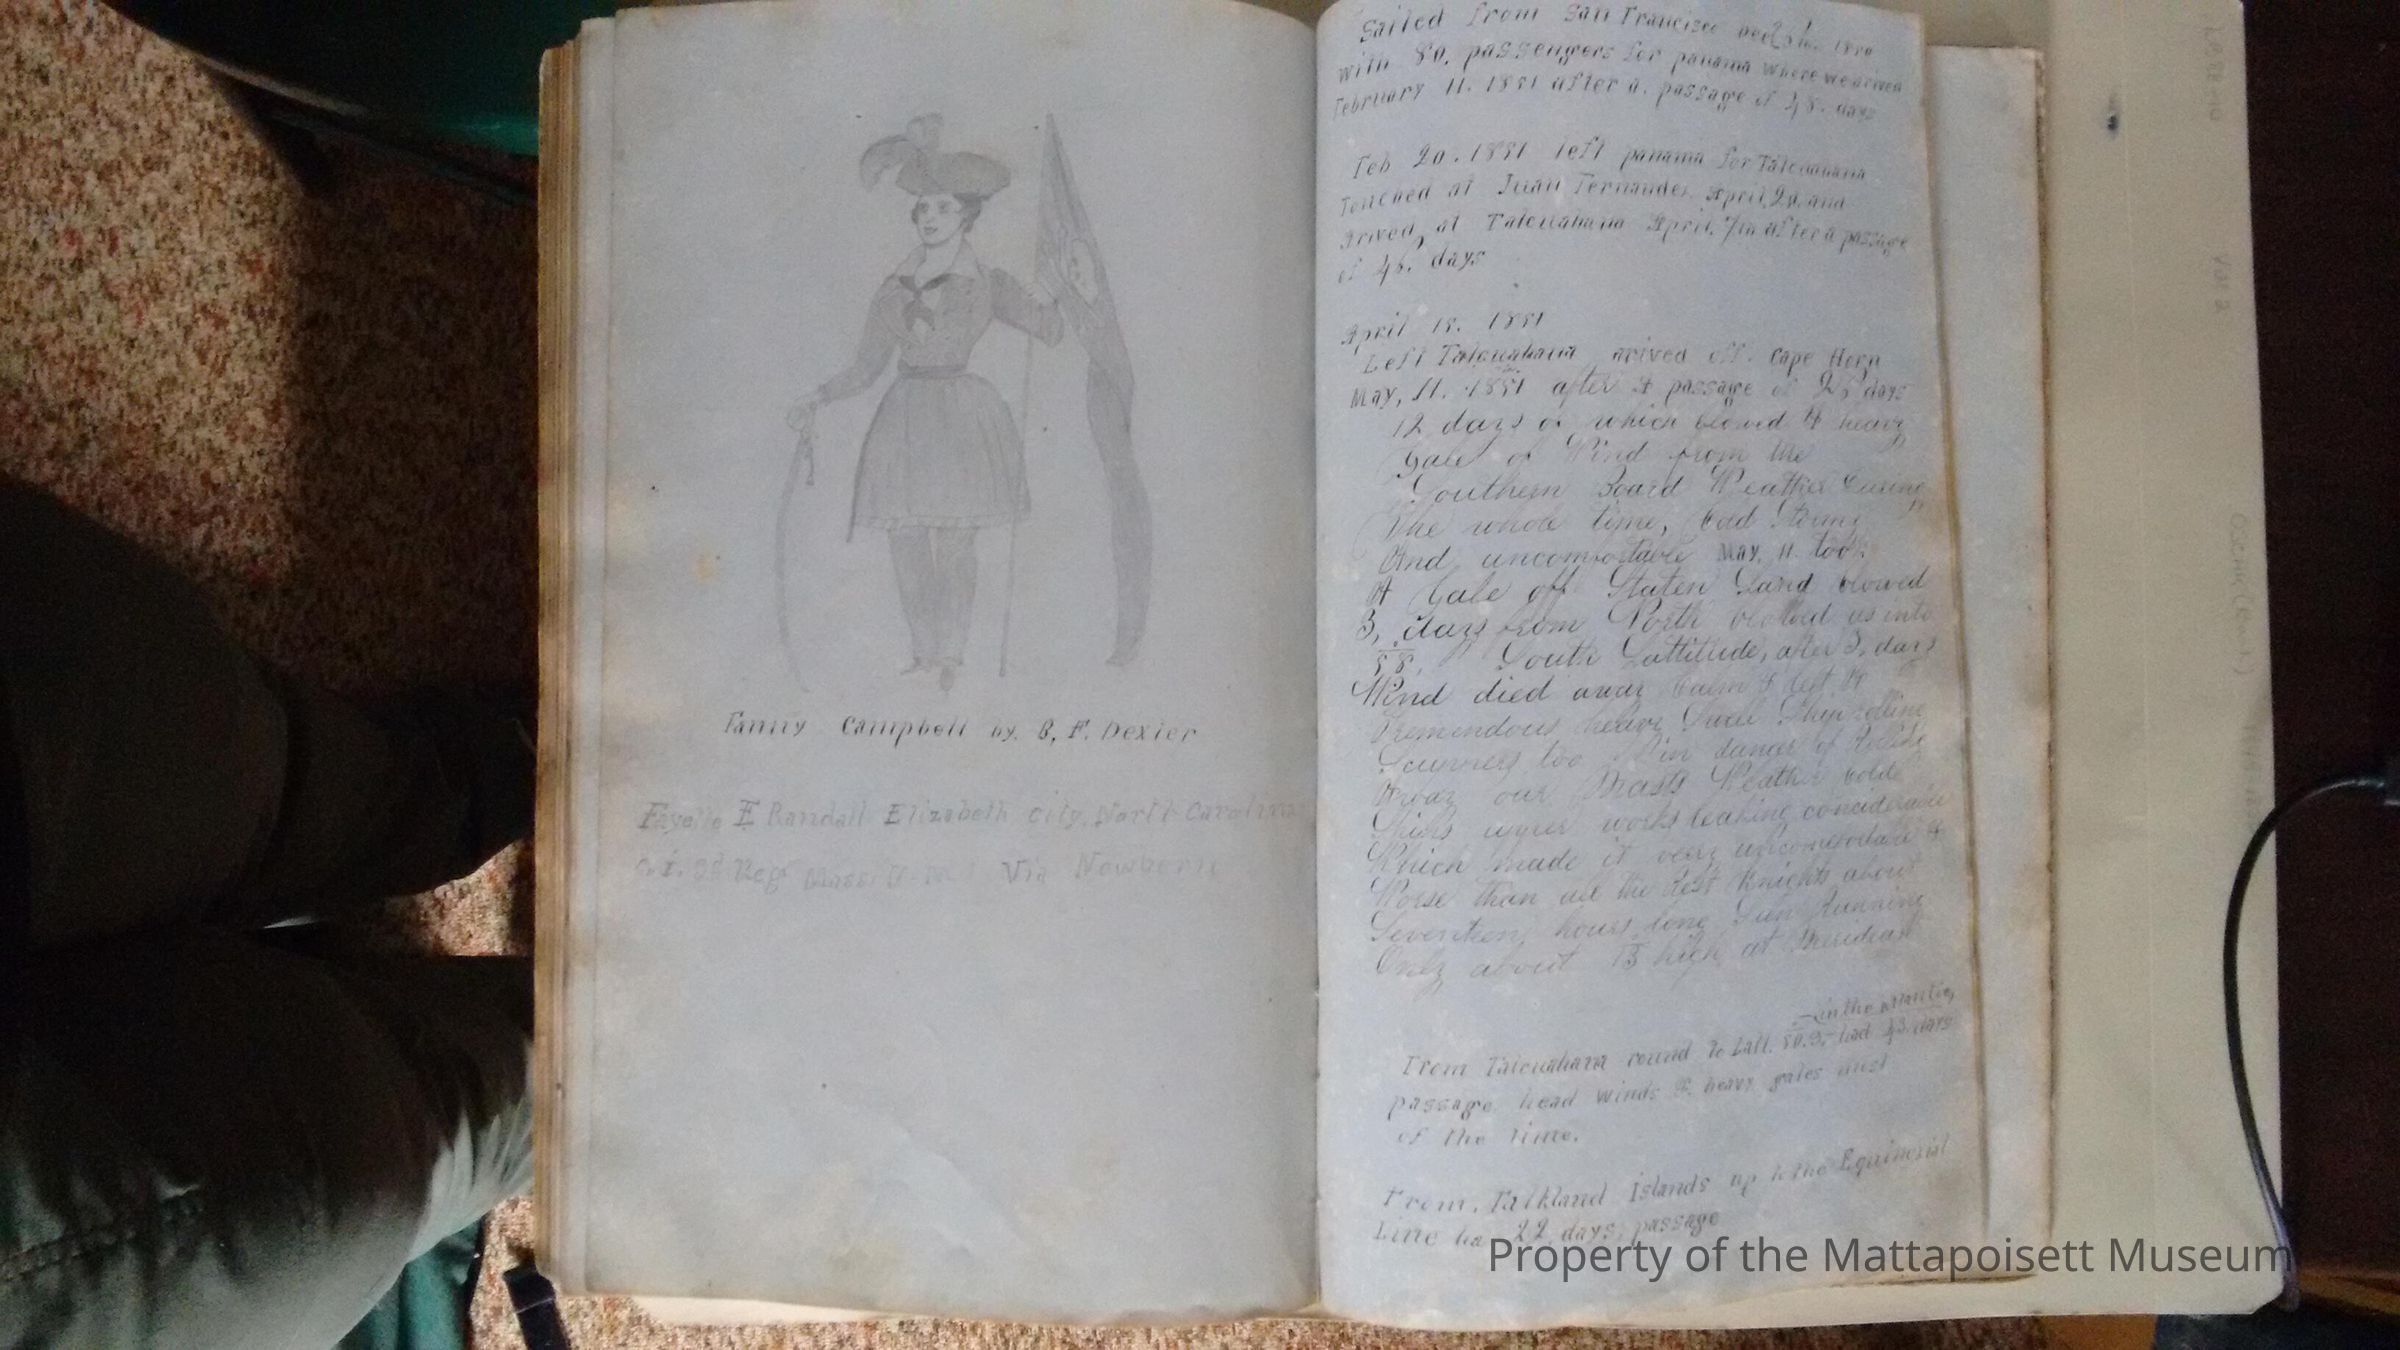 Fanny Campbell by. B, F. Dexter
Fayette E Randall Elizabeth City, North Carolina
3d Reg Mass. Via Newbern
Sailed from San Francisco
with 80, passengers for panama where we arived
February 11. 1851 after a. passage of 48. days
Feb 20. 1851 left panama for Talcuahana
Touched at Juan Fernandes. April, and
Arived, at Talcuahana April. after a passage
of 46, days
April 15. 1851
Left Talcuahana arived off. Cape Horn
May, 11. 1851 after A passage of 26 days
12 days of which blowed A heavy
Gale of Wind from the
Southern Board Weather During
The whole time, bad Stormy
And uncomfortable May, 11. took
A Gale off Staten Land blowed
3, days from North blowed us into
58. South Lattitude, after 3, days
Wind died away Calm & left A
Tremendous heavy Swell Ship rolling
Scuppers too in danger of Rolling
Away our Masts Weather cold
Ships upper works leaking considerable
Which made it very uncomfortable &
Worse than all the rest Knights about
Seventeen hours long Sun Running
Only about 13 high at Meridian
in the Atlantic,
From Talcuahana round to Latt. 50.S, had 43. days
passage head winds & heavy gales most
of the time.
From, Falkland Islands up to the Equinoxial
Line 22, days, passage
Property of the Mattapoisett Museum